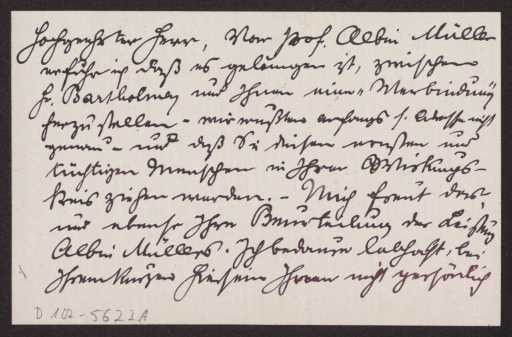 Hochgeehrter Herr, Von Prof. Albin Müller
erfuhr ich daß es gelungen ist, zwischen
H. Bartholmey und Ihnen eine Verbindung
herzustellen – wir wußten anfangs s. Adresse nicht
genau – und daß Sie diesen ernsten und
tüchtigen Menschen in Ihren Wirkungs-
kreis ziehen werden. – Mich freut das,
und ebenso Ihre Beurteilung der Leistung
Albin Müllers. Ich bedaure lebhaft, bei
Ihrem kurzen Hiersein Ihnen nicht persönlich
D 102-5622A